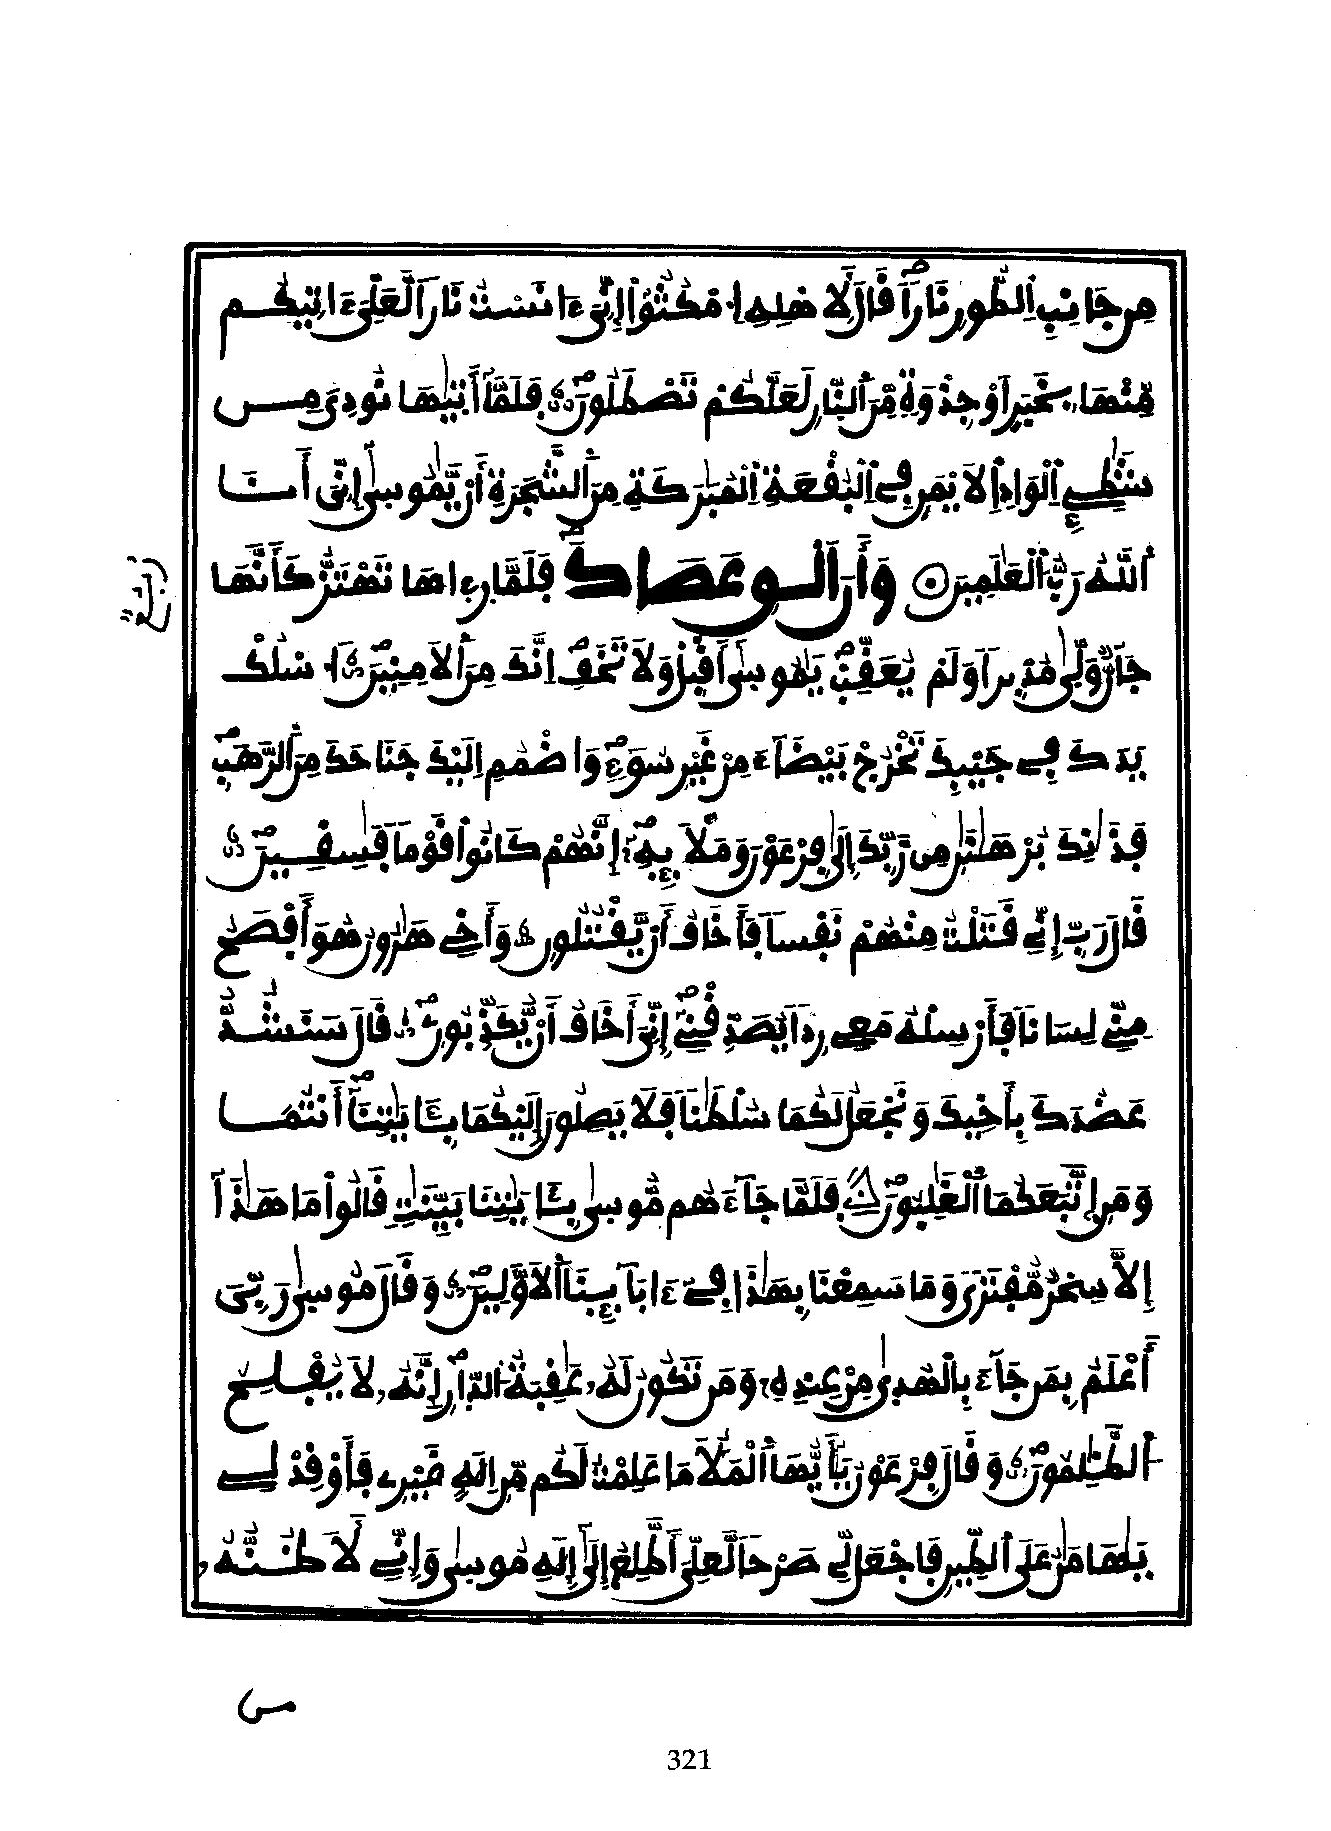 مِن جَانِبِ اِ۬لطُّورِ نَاراٗ قَالَ لِأَهْلِهِ اِ۟مْكُثُوٓاْ إِنِّيَ ءَانَسْتُ نَاراٗ لَّعَلِّيَ ءَاتِيكُم
مِّنْهَا بِخَبَرٍ اَوْ جِذْوَةٖ مِّنَ اَ۬لنّ۪ارِ لَعَلَّكُمْ تَصْطَلُونَۖ فَلَمَّآ أَت۪يٰهَا نُودِيَ مِن
شَٰطِےِٕ اِ۬لْوَادِ اِ۬لَايْمَنِ فِے اِ۬لْبُقْعَةِ اِ۬لْمُبَٰرَكَةِ مِنَ اَ۬لشَّجَرَةِ أَنْ يَّٰمُوس۪يٰٓ إِنِّيَ أَنَا
اَ۬للَّهُ رَبُّ اُ۬لْعَٰلَمِينَ وَأَنَ اَلْقِ عَصَاكَۖ فَلَمَّا ر۪ء۪اهَا تَهْتَزُّ كَأَنَّهَا
جَآنّٞ وَلّ۪يٰ مُدْبِراٗ وَلَمْ يُعَقِّبْۖ يَٰمُوس۪يٰٓ أَقْبِلْ وَلَا تَخَفِۖ اِنَّكَ مِنَ اَ۬لَامِنِينَۖ اَ۟سْلُكْ
يَدَكَ فِے جَيْبِكَ تَخْرُجْ بَيْضَآءَ مِنْ غَيْرِ سُوٓءٖۖ وَاضْمُمِ اِلَيْكَ جَنَاحَكَ مِنَ اَ۬لرَّهَبِۖ
فَذَٰنِكَ بُرْهَٰنَٰنِ مِن رَّبِّكَ إِلَيٰ فِرْعَوْنَ وَمَلَإِيْهِۦٓۖ إِنَّهُمْ كَانُواْ قَوْماٗ فَٰسِقِينَۖ
قَالَ رَبِّ إِنِّے قَتَلْتُ مِنْهُمْ نَفْساٗ فَأَخَافُ أَنْ يَّقْتُلُونِ وَأَخِے هَٰرُونُ هُوَ أَفْصَحُ
مِنِّے لِسَاناٗ فَأَرْسِلْهُ مَعِے رِداٗ يُصَدِّقْنِےٓۖ إِنِّيَ أَخَافُ أَنْ يُّكَذِّبُونِۖ قَالَ سَنَشُدُّ
عَضُدَكَ بِأَخِيكَ وَنَجْعَلُ لَكُمَا سُلْطَٰناٗ فَلَا يَصِلُونَ إِلَيْكُمَا بِـَٔايَٰتِنَآۖ أَنتُمَا
وَمَنِ اِ۪تَّبَعَكُمَا اَ۬لْغَٰلِبُونَۖ فَلَمَّا جَآءَهُم مُّوس۪يٰ بِـَٔايَٰتِنَا بَيِّنَٰتٖ قَالُواْ مَا هَٰذَآ
إِلَّا سِحْرٞ مُّفْتَريٗ وَمَا سَمِعْنَا بِهَٰذَا فِےٓ ءَابَآئِنَا اَ۬لَاوَّلِينَۖ وَقَالَ مُوس۪يٰ رَبِّيَ
أَعْلَمُ بِمَن جَآءَ بِالْهُد۪يٰ مِنْ عِندِهِۦ وَمَن تَكُونُ لَهُۥ عَٰقِبَةُ اُ۬لدّ۪ارِۖ إِنَّهُۥ لَا يُفْلِحُ
اُ۬لظَّٰلِمُونَۖ وَقَالَ فِرْعَوْنُ يَٰٓأَيُّهَا اَ۬لْمَلَأُ مَا عَلِمْتُ لَكُم مِّنِ اِلَٰهٍ غَيْرِے فَأَوْقِدْ لِے
يَٰهَٰمَٰنُ عَلَي اَ۬لطِّينِ فَاجْعَل لِّے صَرْحاٗ لَّعَلِّيَ أَطَّلِعُ إِلَيٰٓ إِلَٰهِ مُوس۪يٰ وَإِنِّے لَأَظُنُّهُۥ
321